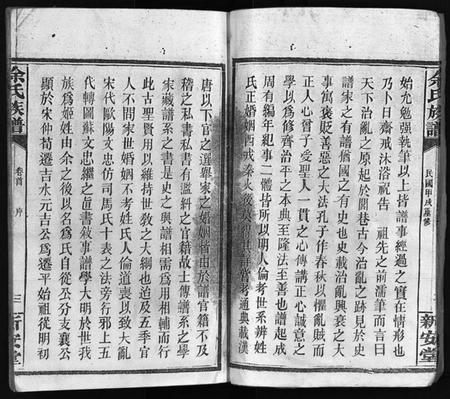 余氏族譜
民國甲戌屆修
新安堂
始允勉强執筆以上皆譜事經過之實在情形也
乃卜日齋戒沐浴祝告 祖先之前濡筆而言曰
天下治亂之原起於閭巷古今治亂之跡見於史
譜家之有譜猶國之有史也史載治亂興衰之大
事寓褒貶善惡之大法孔子作春秋以懼亂賊而
正人心曾子受聖人一貫之心傳講正心誠意之
學以爲修齊治平之本典至隆法至善也譜起成
周有編年紀事二體皆所以明人倫考世系辨姓
氏正婚姻 戒秦火後莫 考通典載漢
唐以下官之選舉家之婚姻皆由於譜官籍不及
稽之私書私書有濫糾之官籍故上傳譜系之學
家藏譜系之書是史之與譜相需爲用相輔而行
此古聖賢用以維持世敎之大綱也迨及五季官
人不問家世婚姻不考姓氏人倫道喪以致大亂
宋代歐陽文忠仿司馬氏十表之法旁行邪上五
代轉圖蘇文忠繼之 書敘事譜學大明於世我
族爲姬姓由余之後以名爲氏自從公分支襄公
顯於宋仲荀遷吉水元吉公爲遷平始祖從明初
余氏族譜
卷首 序
三
新安堂